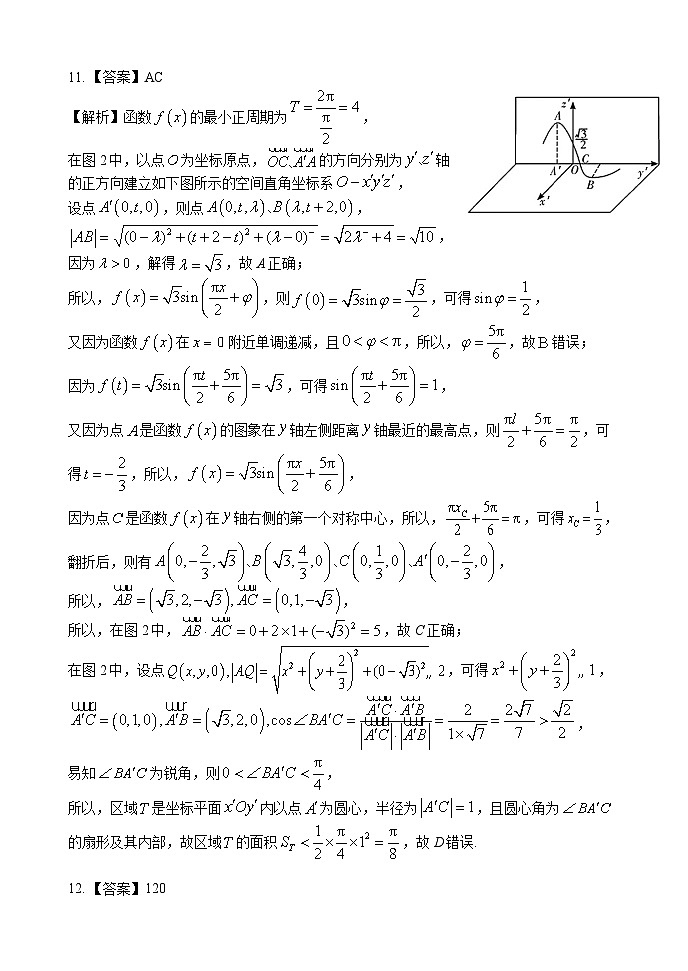 11. 【答案】AC
【解析】函数 f(x) 的最小正周期为 T = 2π/(π/2) = 4，
在图 2 中，以点 O 为坐标原点，OC、A′A 的方向分别为 y′、z′ 轴
的正方向建立如下图所示的空间直角坐标系 O－x′y′z′，
设点 A′(0,t,0)，则点 A(0,t,λ)、B(λ,t+2,0)，
|AB| = √((0−λ)²+(t+2−t)²+(λ−0)⁻) = √(2λ⁻+4) = √10，
因为 λ > 0，解得 λ = √3，故 A 正确；
所以，f(x) = √3sin(πx/2+φ)，则 f(0) = √3sinφ = √3/2，可得 sinφ = 1/2，
又因为函数 f(x) 在 x = 0 附近单调递减，且 0 < φ < π，所以，φ = 5π/6，故 B 错误；
因为 f(t) = √3sin(πt/2+5π/6) = √3，可得 sin(πt/2+5π/6) = 1，
又因为点 A 是函数 f(x) 的图象在 y 轴左侧距离 y 轴最近的最高点，则 πl/2+5π/6 = π/2，可
得 t = −2/3，所以，f(x) = √3sin(πx/2+5π/6)，
因为点 C 是函数 f(x) 在 y 轴右侧的第一个对称中心，所以，πx_C/2+5π/6 = π，可得 x_C = 1/3，
翻折后，则有 A(0,−2/3,√3)、B(√3,4/3,0)、C(0,1/3,0)、A′(0,−2/3,0)，
所以，AB = (√3,2,−√3), AC = (0,1,−√3)，
所以，在图 2 中，AB·AC = 0+2×1+(−√3)² = 5，故 C 正确；
在图 2 中，设点 Q(x,y,0), |AQ| = √(x²+(y+2/3)²+(0−√3)²) „ 2，可得 x²+(y+2/3)² „ 1，
A′C = (0,1,0), A′B = (√3,2,0), cos∠BA′C = A′C·A′B/(|A′C|·|A′B|) = 2/(1×√7) = 2√7/7 > √2/2，
易知 ∠BA′C 为锐角，则 0 < ∠BA′C < π/4，
所以，区域 T 是坐标平面 x′Oy′ 内以点 A′ 为圆心，半径为 |A′C| = 1，且圆心角为 ∠BA′C
的扇形及其内部，故区域 T 的面积 S_T < 1/2×π/4×1² = π/8，故 D 错误.
12. 【答案】120
z′
A
√3/2
C
A′
O
B
y′
x′